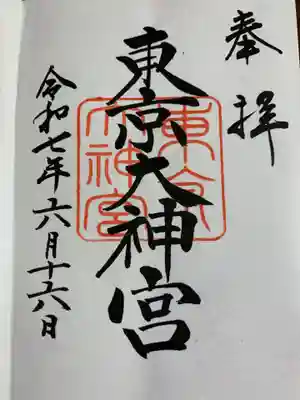 奉拝
東京大神宮
東京大神宮
令和七年六月十六日